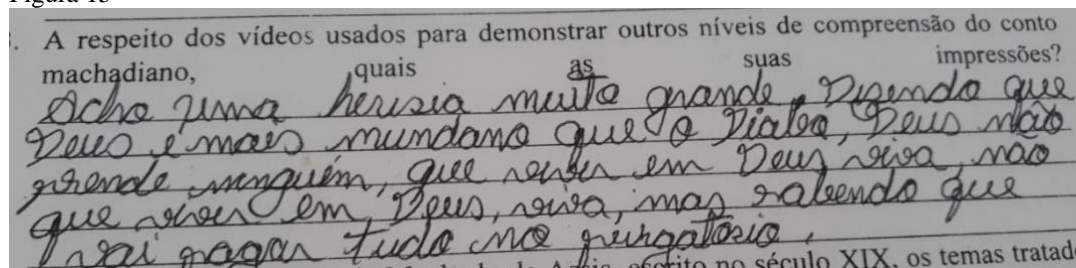 A respeito dos vídeos usados para demonstrar outros níveis de compreensão do conto
machadiano, quais as suas impressões?
Acho uma herisia muito grande, Disendo que
Deus é mais mundano que o Diabo, Deus não
prende ninguém, quer viver em Deus viva, não
que viver em, Deus, viva, mas sabendo que
vai pagar tudo no purgatorio.
escrito no século XIX, os temas tratad